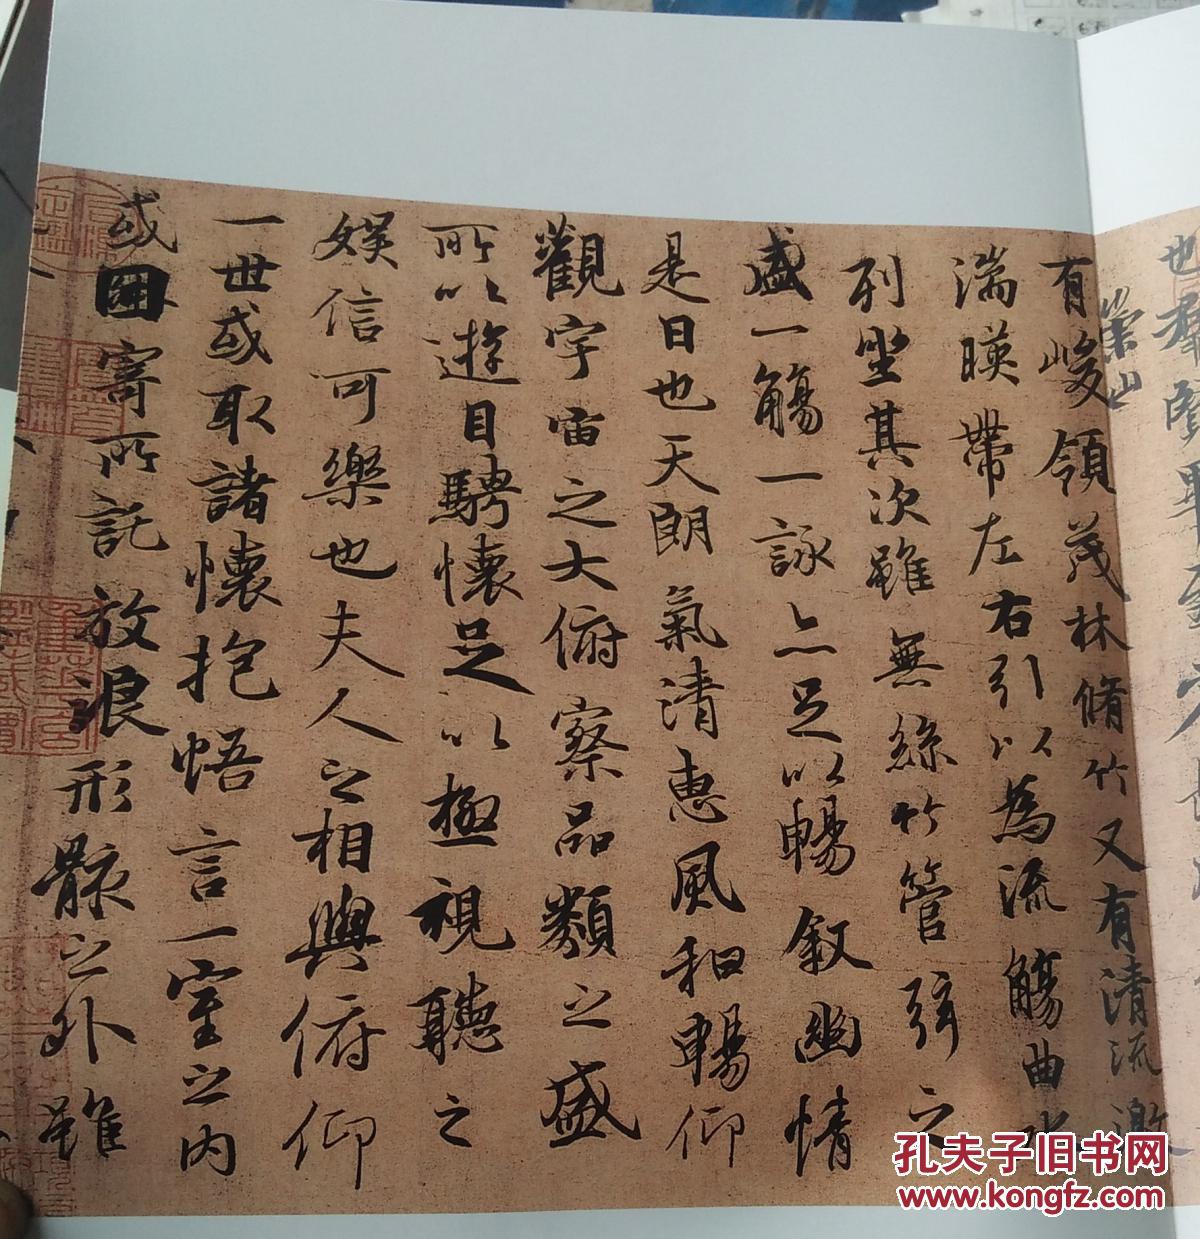 也羣賢畢至
崇山
有峻領茂林脩竹又有清流激
湍暎帶左右引以為流觴曲水
列坐其次雖無絲竹管弦之
盛一觴一詠亦足以暢敘幽情
是日也天朗氣清惠風和暢仰
觀宇宙之大俯察品類之盛
所以遊目騁懷足以極視聽之
娛信可樂也夫人之相與俯仰
一世或取諸懷抱悟言一室之內
或因寄所託放浪形骸之外雖
孔夫子旧书网
www.kongfz.com